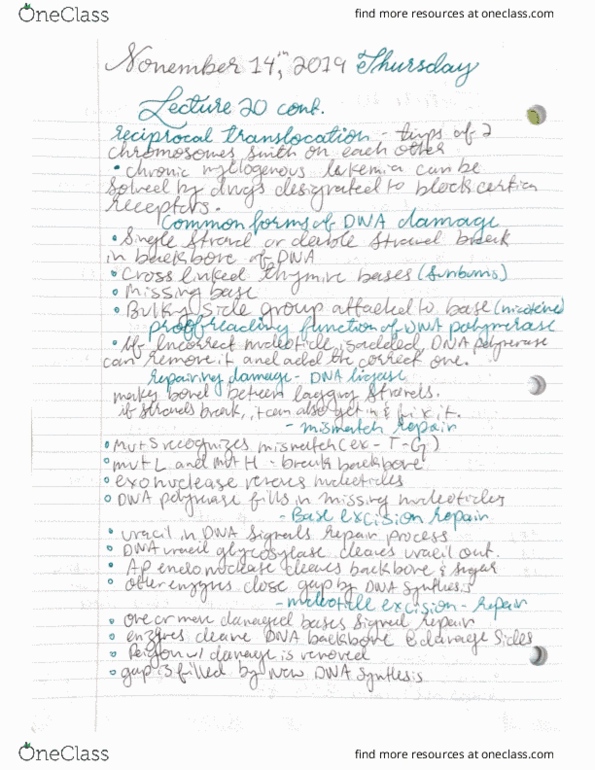 OneClass
find more resources at oneclass.com
November 14th, 2019 Thursday
Lecture 20 cont.
reciprocal translocation - tips of 2
chromosomes swith on each other
• chronic myllogenous lekemia can be
solved by drugs designated to block certin
receptors.
Common forms of DNA damage
• Single Strand or double Strand break
in backbone of DNA
• Cross linked thymine bases (sunburns)
• Missing base
• Bulky side group attached to base (nicotine)
proofreading function of DNA polymerase
• If incorrect nucleotide is added, DNA polymerase
can remove it and add the correct one.
repairing damage - DNA ligase
makes bond between lagging strands.
if strands break, it can also get in & fix it.
- mismatch repair
• mut S recognizes mismatch (ex - T-G)
• mut L and mut H - break backbone
• exonuclease removes nucleotides
• DNA polymerase fills in missing nucleotides
- Base excision repair
• uracil in DNA signals repair process
• DNA uracil glycosylase cleaves uracil out.
• AP endonuclease cleaves backbone & sugar
• other enzymes close gap by DNA synthesis
- nucleotide excision - repair
• one or more damaged bases signal repair
• enzymes cleave DNA backbone @ damage sides
• Region w/ damage is removed
• gap is filled by new DNA synthesis
OneClass
find more resources at oneclass.com